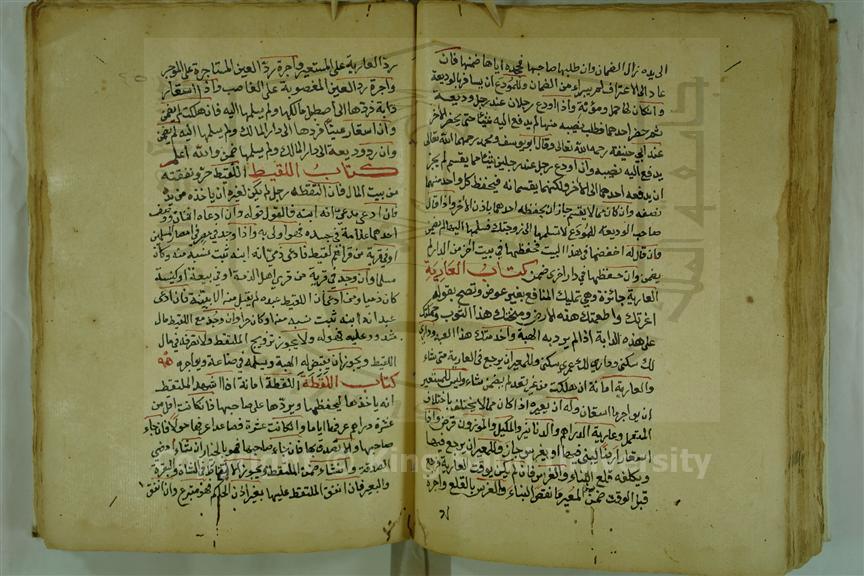 الى يده زال الضمان وان طلبها صاحبها فجحده اياها ضمنها فان
عاد الى الاعتراف لم يبراء من الضمان وللمودع ان يسافر بالوديعة
وان كان لها حمل ومؤنة واذا اودع رجلان عند رجل وديعة
ثم حضر احدهما فطلب نصيبه منها لم يدفع اليه شيئا حتى يحضر الآخر
عند ابي حنيفة رحمه الله تعالى وقال ابو يوسف ومحمد رحمهما الله تعالى
يدفع اليه نصيبه وان اودع رجل عند رجلين شيئا مما يقسم لم يجز
ان يدفعه احدهما الى الآخر ولكنهما يقتسمانه فيحفظ كل واحد منهما
نصفه وان كان مما لا يقسم جاز ان يحفظه احدهما باذن الآخر واذا قال
صاحب الوديعة للمودع لا تسلمها الى زوجتك فسلمها اليها لم يضمن
وان قال له احفظها في هذا البيت فحفظها في بيت آخر من الدار لم
يضمن وان حفظها في دار اخرى ضمن كتاب العارية
العارية جائزة وهي تمليك المنافع بغير عوض وتصح بقوله
اعرتك واطعمتك هذه الارض ومنحتك هذا الثوب وحملتك
على هذه الدابة اذا لم يرد به الهبة واخدمتك هذا العبد وداري
لك سكنى وداري لك عمرى سكنى وللمعير ان يرجع في العارية متى شاء
والعارية امانة ان هلكت من غير تعد لم يضمن شيئا وليس للمستعير
ان يؤاجر ما استعاره وله ان يعيره اذا كان مما لا يختلف باختلاف
المستعمل وعارية الدراهم والدنانير والمكيل والموزون قرض واذا
استعار ارضا ليبني فيها او يغرس جاز وللمعير ان يرجع فيها
ويكلفه قلع البناء والغرس فان لم يكن وقت العارية
قبل الوقت ضمن المعير ما نقص البناء والغرس بالقلع واجرة
رد العارية على المستعير واجرة رد العين المستاجرة على الموجر
واجرة رد العين المغصوبة على الغاصب واذا استعار
دابة فردها الى اصطبل مالكها ولم يسلمها اليه فان هلكت لم يضمن
وان استعار عينا فردها الى دار المالك ولم يسلمها اليه لم يضمن
وان رد وديعة الى دار المالك ولم يسلمها ضمن والله اعلم
كتاب اللقيط اللقيط حر ونفقته
من بيت المال فان التقطه رجل لم يكن لغيره ان ياخذه من يده
فان ادعى مدعي انه ابنه فالقول قوله وان ادعاه اثنان ووصف
احدهما علامة في جسده فهو اولى به واذا وجد في مصر من امصار المسلمين
او في قرية من قراهم لقيط فادعى ذمي انه ابنه ثبت نسبه منه وكان
مسلما وان وجد في قرية من قرى اهل الذمة او في بيعة او كنيسة
كان ذميا ومن ادعى ان اللقيط عبده لم يقبل منه الا ببينة فان ادعى
عبد انه ابنه ثبت نسبه منه وكان حرا وان وجد مع اللقيط مال
مشدود عليه فهو له ولا يجوز تزويج الملتقط ولا تصرفه في مال
اللقيط ويجوز ان يقبض له الهبة ويسلمه في صناعة ويواجره
كتاب اللقطة اللقطة امانة اذا اشهد الملتقط
انه ياخذها ليحفظها ويردها على صاحبها فان كانت اقل من
عشرة دراهم عرفها اياما وان كانت عشرة فصاعدا عرفها حولا فان جاء
صاحبها والا تصدق بها فان جاء صاحبها فهو بالخيار ان شاء امضى
الصدقة وان شاء ضمن الملتقط ويجوز الالتقاط في الشاة والبقرة
والبعير فان انفق الملتقط عليها بغير اذن الحاكم فهو متبرع وان انفق